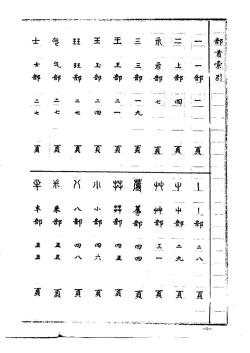 部首索引
一部 一 頁
上部 四 頁
示部 七 頁
三部 一九 頁
王部 頁
玉部 頁
玨部 二七 頁
气部 二七 頁
士部 二七 頁
丨 丨部 二八 頁
屮 屮部 二九 頁
艸 艸部 三一 頁
蓐 蓐部 四四 頁
茻 茻部 四四 頁
小 小部 四六 頁
八 八部 四八 頁
釆 釆部 五五 頁
半 半部 五五 頁